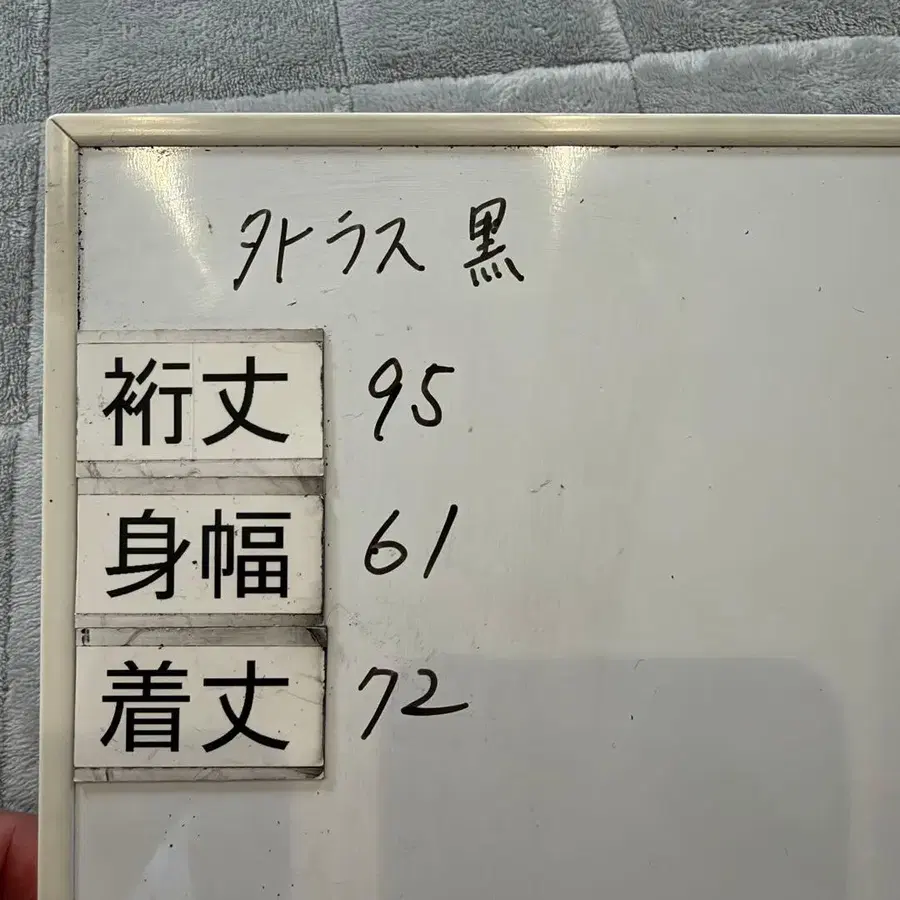 タトラス 黒
裄丈 95
身幅 61
着丈 72